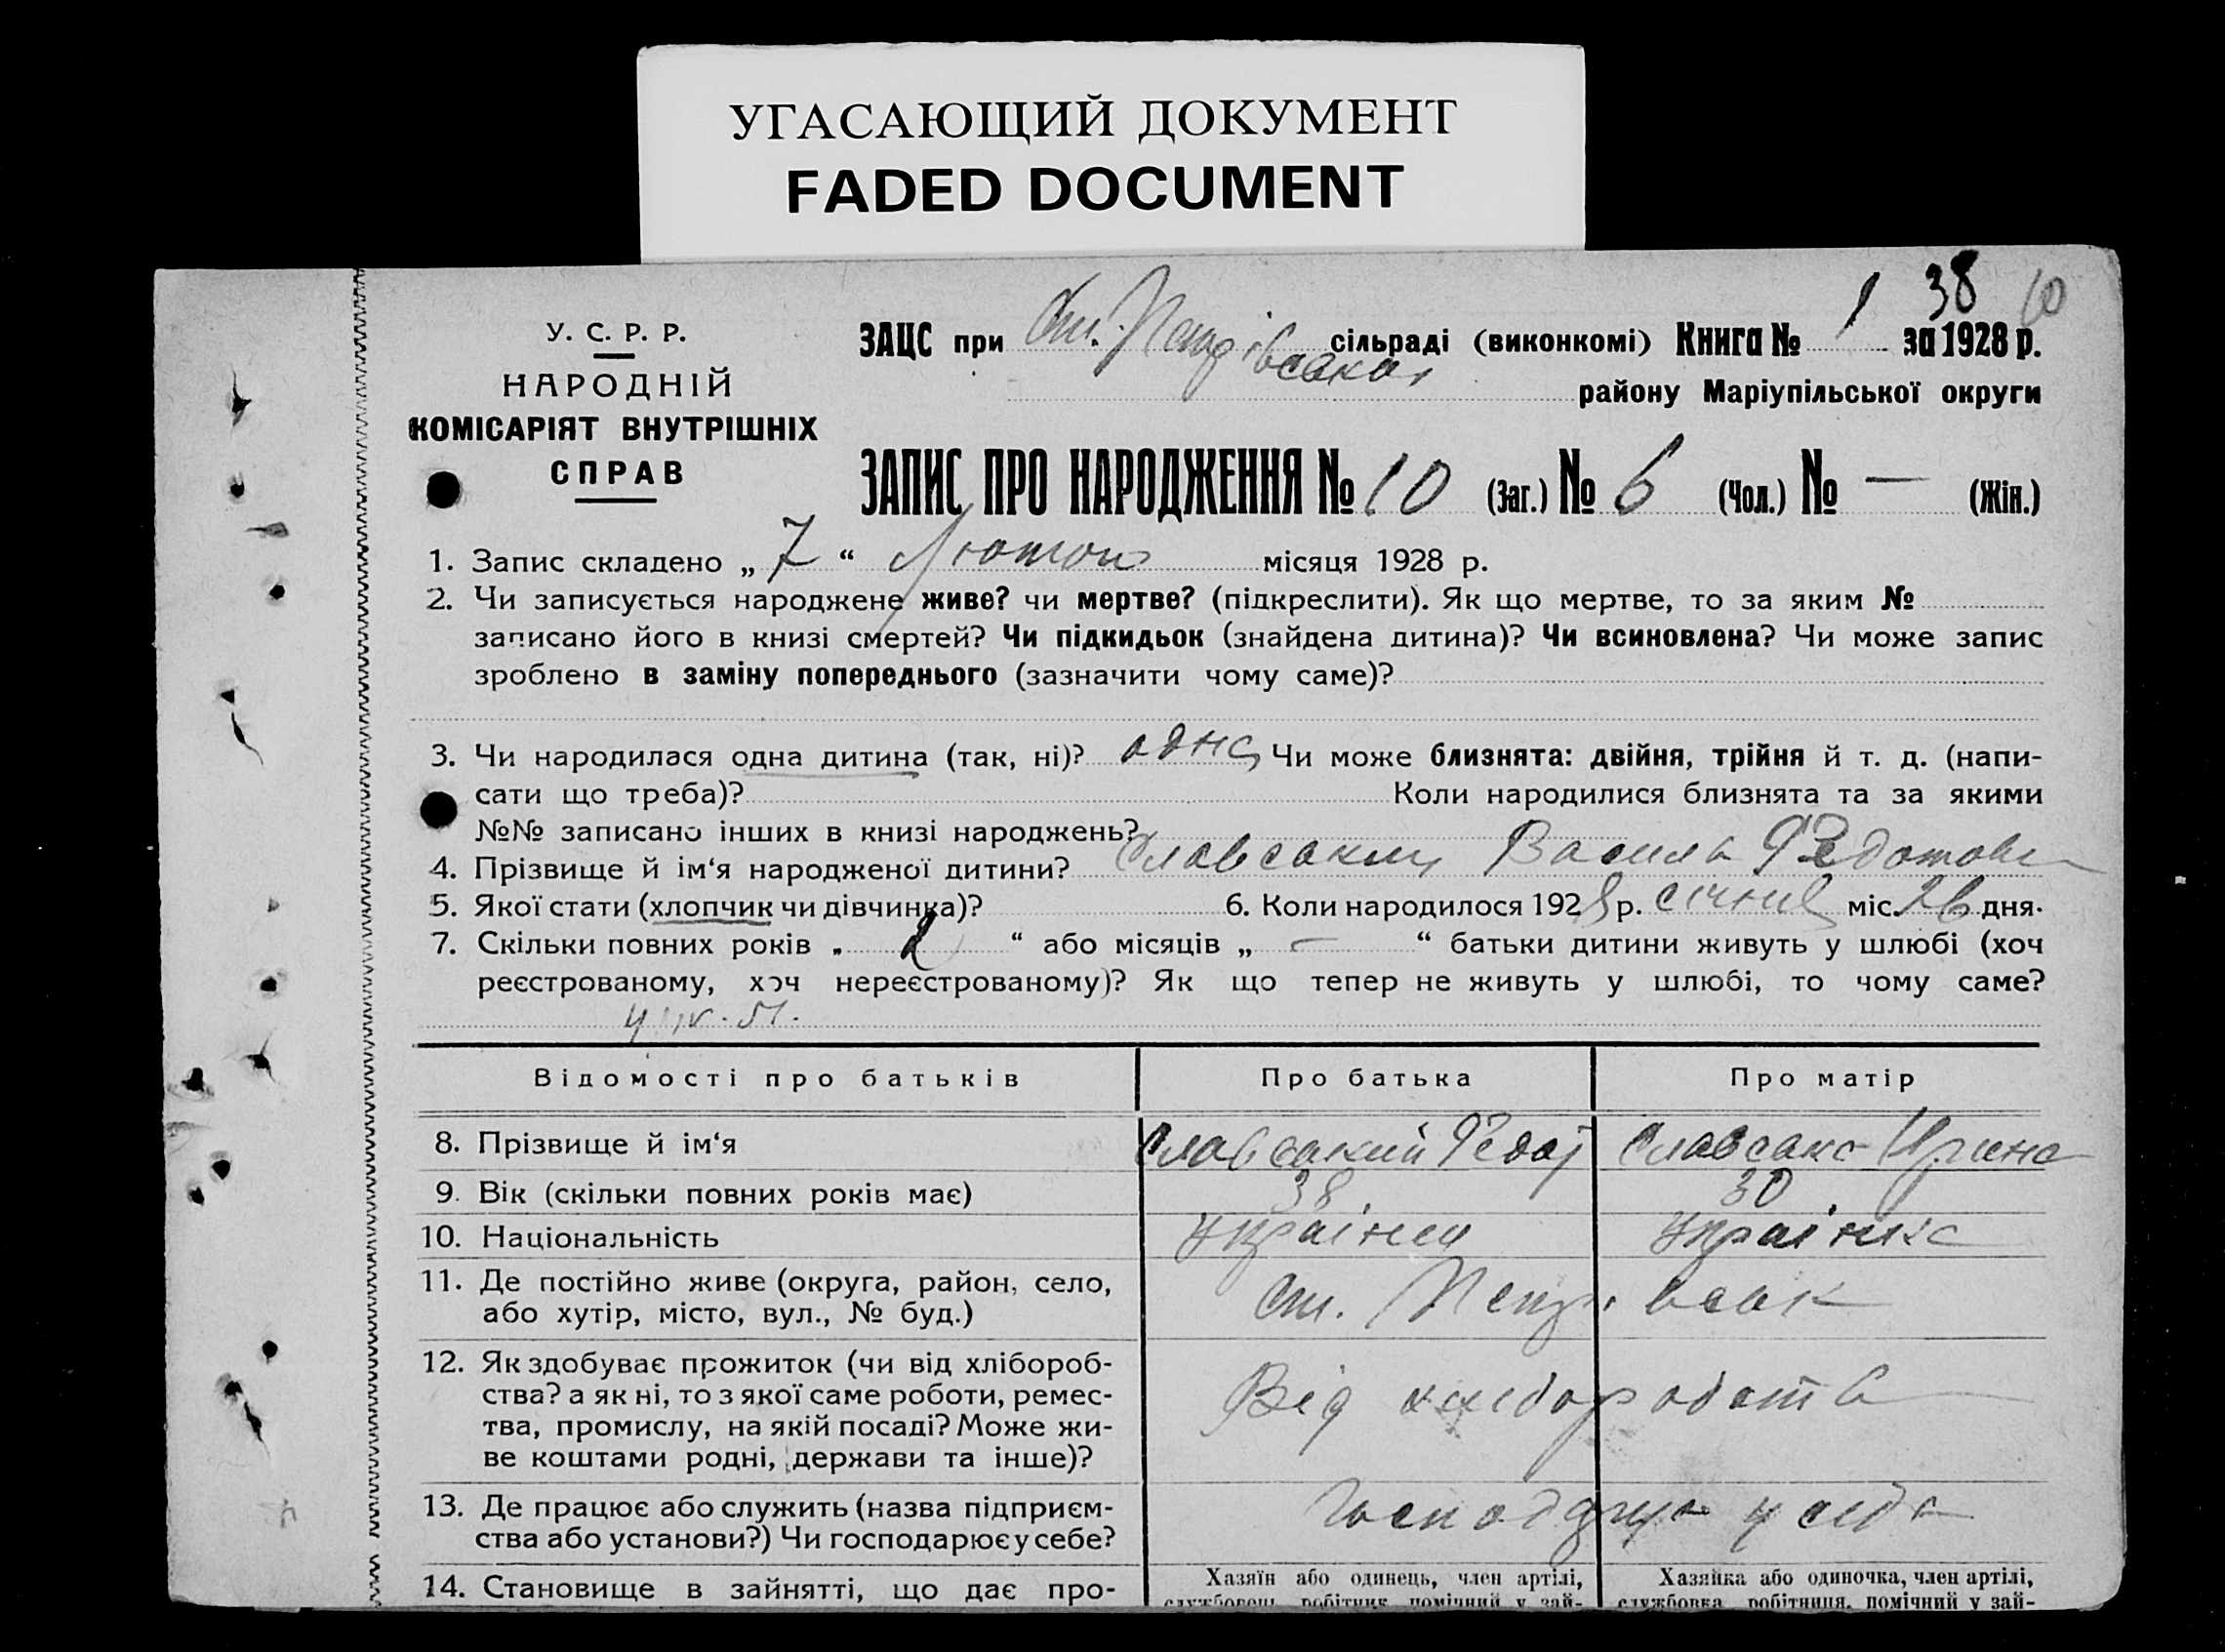 УГАСАЮЩИЙ ДОКУМЕНТ
FADED DOCUMENT
38 10
У. С. Р. Р.
НАРОДНІЙ
КОМІСАРІЯТ ВНУТРІШНІХ
СПРАВ
ЗАЦС при Ст. сільраді (виконкомі) Книга № 1 за 1928 р.
району Маріупільської округи
ЗАПИС ПРО НАРОДЖЕННЯ № 10 (Заг.) № 6 (Чол.) № — (Жін.)
1. Запис складено „ 7 “ Лютого місяця 1928 р.
2. Чи записується народжене живе? чи мертве? (підкреслити). Як що мертве, то за яким №
записано його в книзі смертей? Чи підкидьок (знайдена дитина)? Чи всиновлена? Чи може запис
зроблено в заміну попереднього (зазначити чому саме)?
3. Чи народилася одна дитина (так, ні)? одна Чи може близнята: двійня, трійня й т. д. (напи-
сати що треба)? Коли народилися близнята та за якими
№№ записано інших в книзі народжень?
4. Прізвище й ім‘я народженої дитини? Славський Василь Федотович
5. Якої стати (хлопчик чи дівчинка)? 6. Коли народилося 1928 р. січня міс. 26 дня.
7. Скільки повних років „ 2 “ або місяців „ — “ батьки дитини живуть у шлюбі (хоч
реєстрованому, хоч нереєстрованому)? Як що тепер не живуть у шлюбі, то чому саме?
Відомості про батьків Про батька Про матір
8. Прізвище й ім‘я Славський Федот Славська Ирина
9. Вік (скільки повних років має) 38 30
10. Національність Українец Українка
11. Де постійно живе (округа, район, село,
або хутір, місто, вул., № буд.) Ст.
12. Як здобуває прожиток (чи від хлібороб-
ства? а як ні, то з якої саме роботи, ремес-
тва, промислу, на якій посаді? Може жи-
ве коштами родні, держави та інше)? Від хліборобств
13. Де працює або служить (назва підприєм-
ства або установи?) Чи господарює у себе? у себе
14. Становище в зайнятті, що дає про-
Хазяїн або одинець, член артілі,
службовець, робітник, помічний у зай-
Хазяйка або одиночка, член артілі,
службовка, робітниця, помічний у зай-